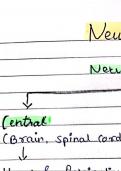 Neu
Nerv
Central
(Brain, spinal cord